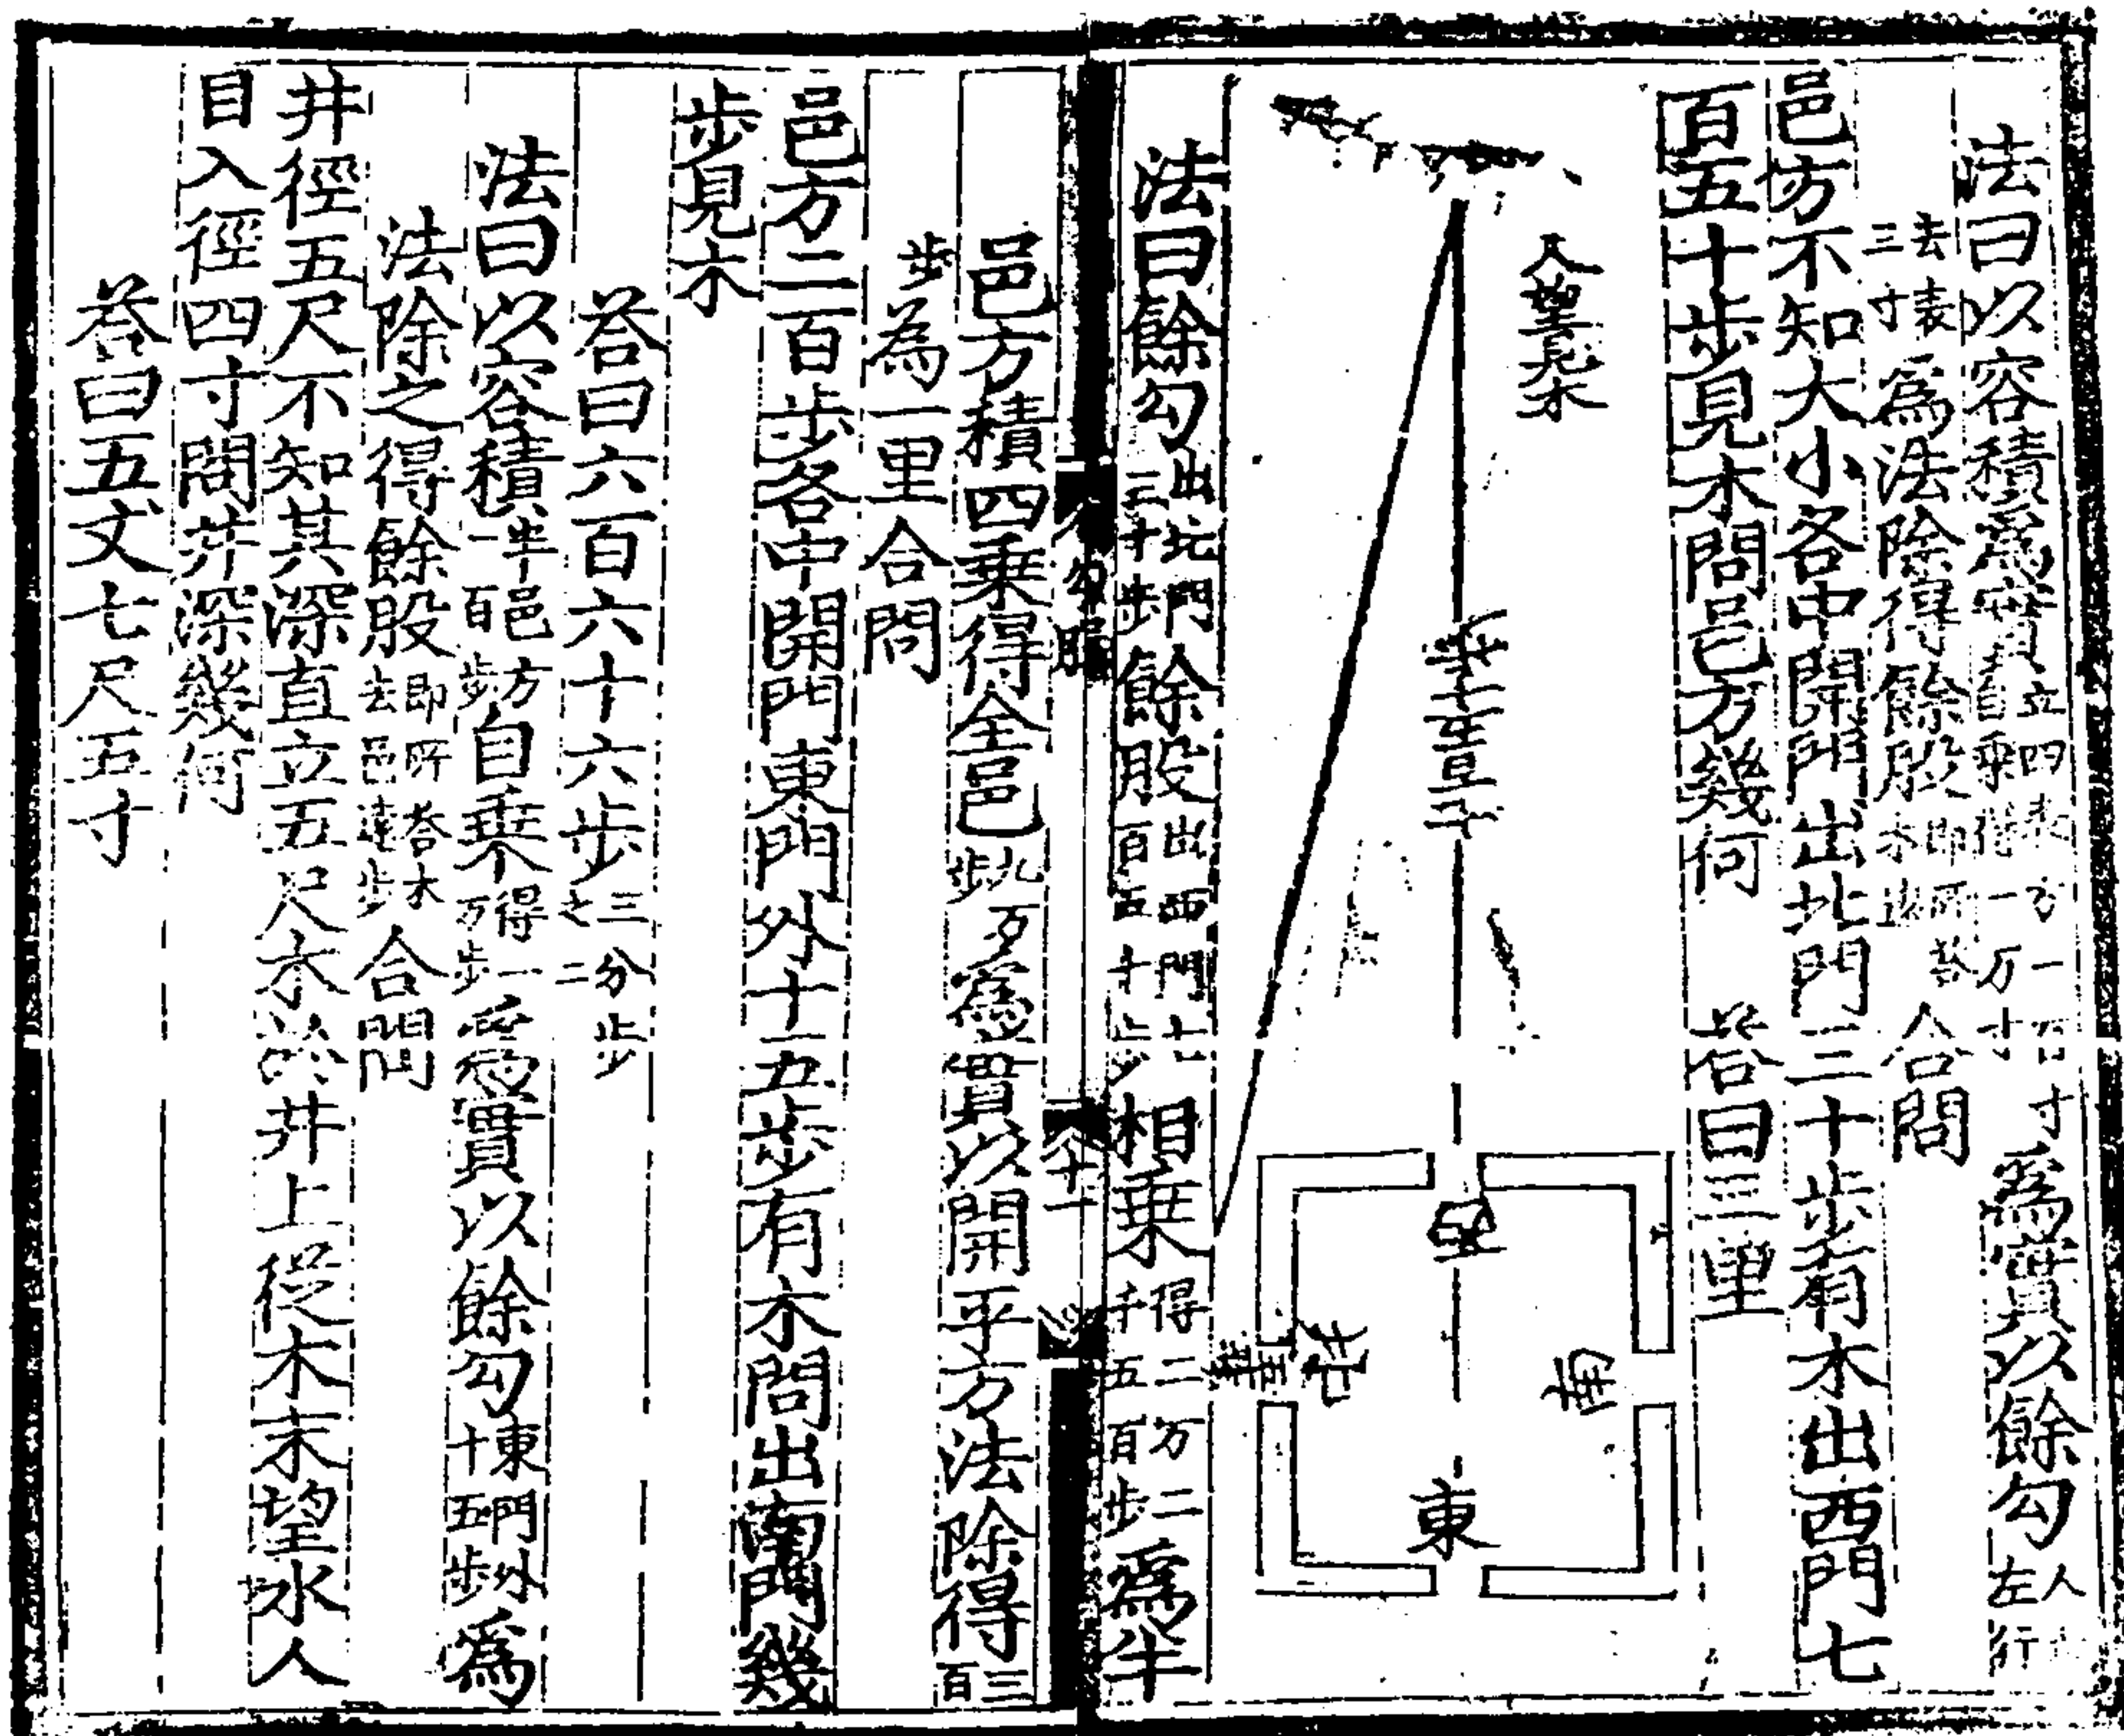 法曰以容積爲實立四表方一百寸自乗得一万寸爲實以餘勾人左行
去表三寸爲法除得餘股即所荅木遠合問
邑方不知大小各中開門出北門三十步有木出西門七
百五十步見木問邑方幾何 荅曰三里
人望見木
東
法曰餘勾出北門三十步餘股出西門七百五十步相乗得二万二千五百步爲半
勾股
邑方積四乗得全邑九万步爲實以開平方法除得三百
步爲一里合問
邑方二百步各中開門東門外十五步有木問出南門幾
步見木
荅曰六百六十六步三分步之二
法曰以容積半邑方一百步自乗得一万步爲實以餘勾東門外十五步爲
法除之得餘股即所荅木去邑遠步合問
井徑五尺不知其深直立五尺木於井上從木末望水人
目入徑四寸問井深幾何
荅曰五丈七尺五寸